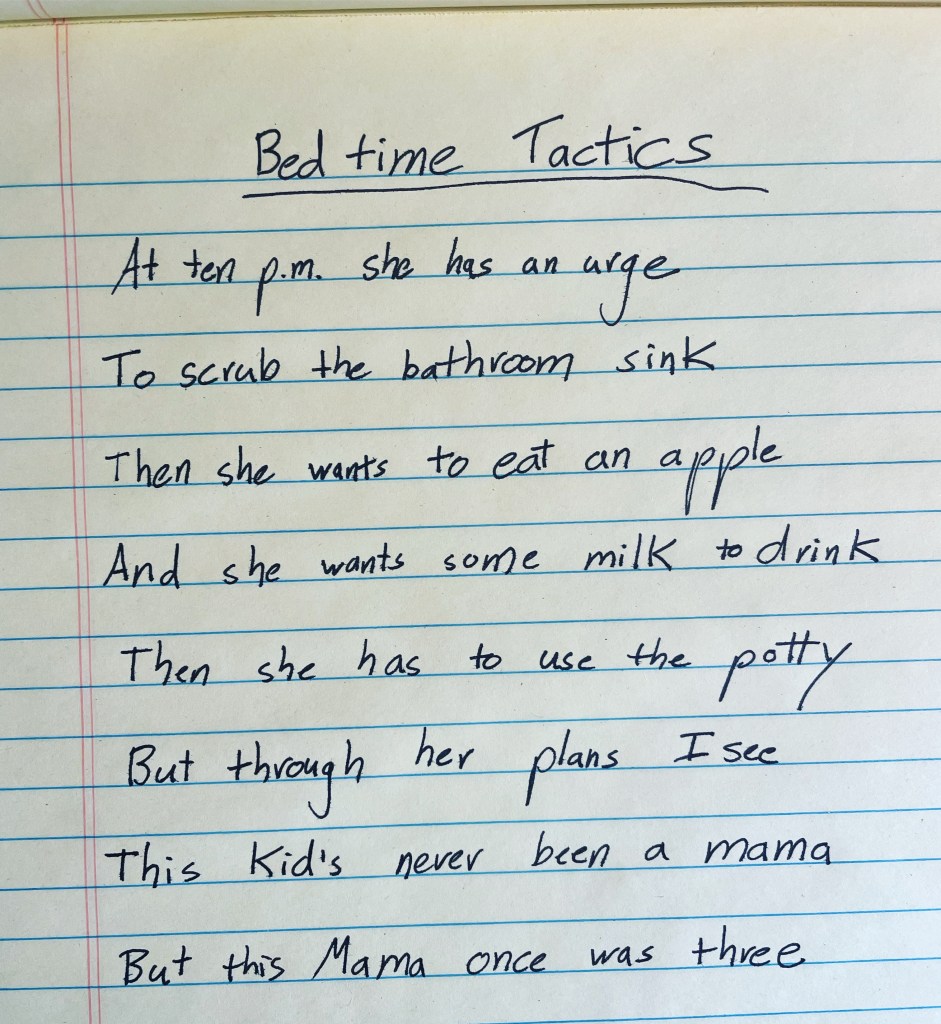 Bed time Tactics
At ten p.m. she has an urge
To scrub the bathroom sink
Then she wants to eat an apple
And she wants some milk to drink
Then she has to use the potty
But through her plans I see
This Kid's never been a mama
But this Mama once was three